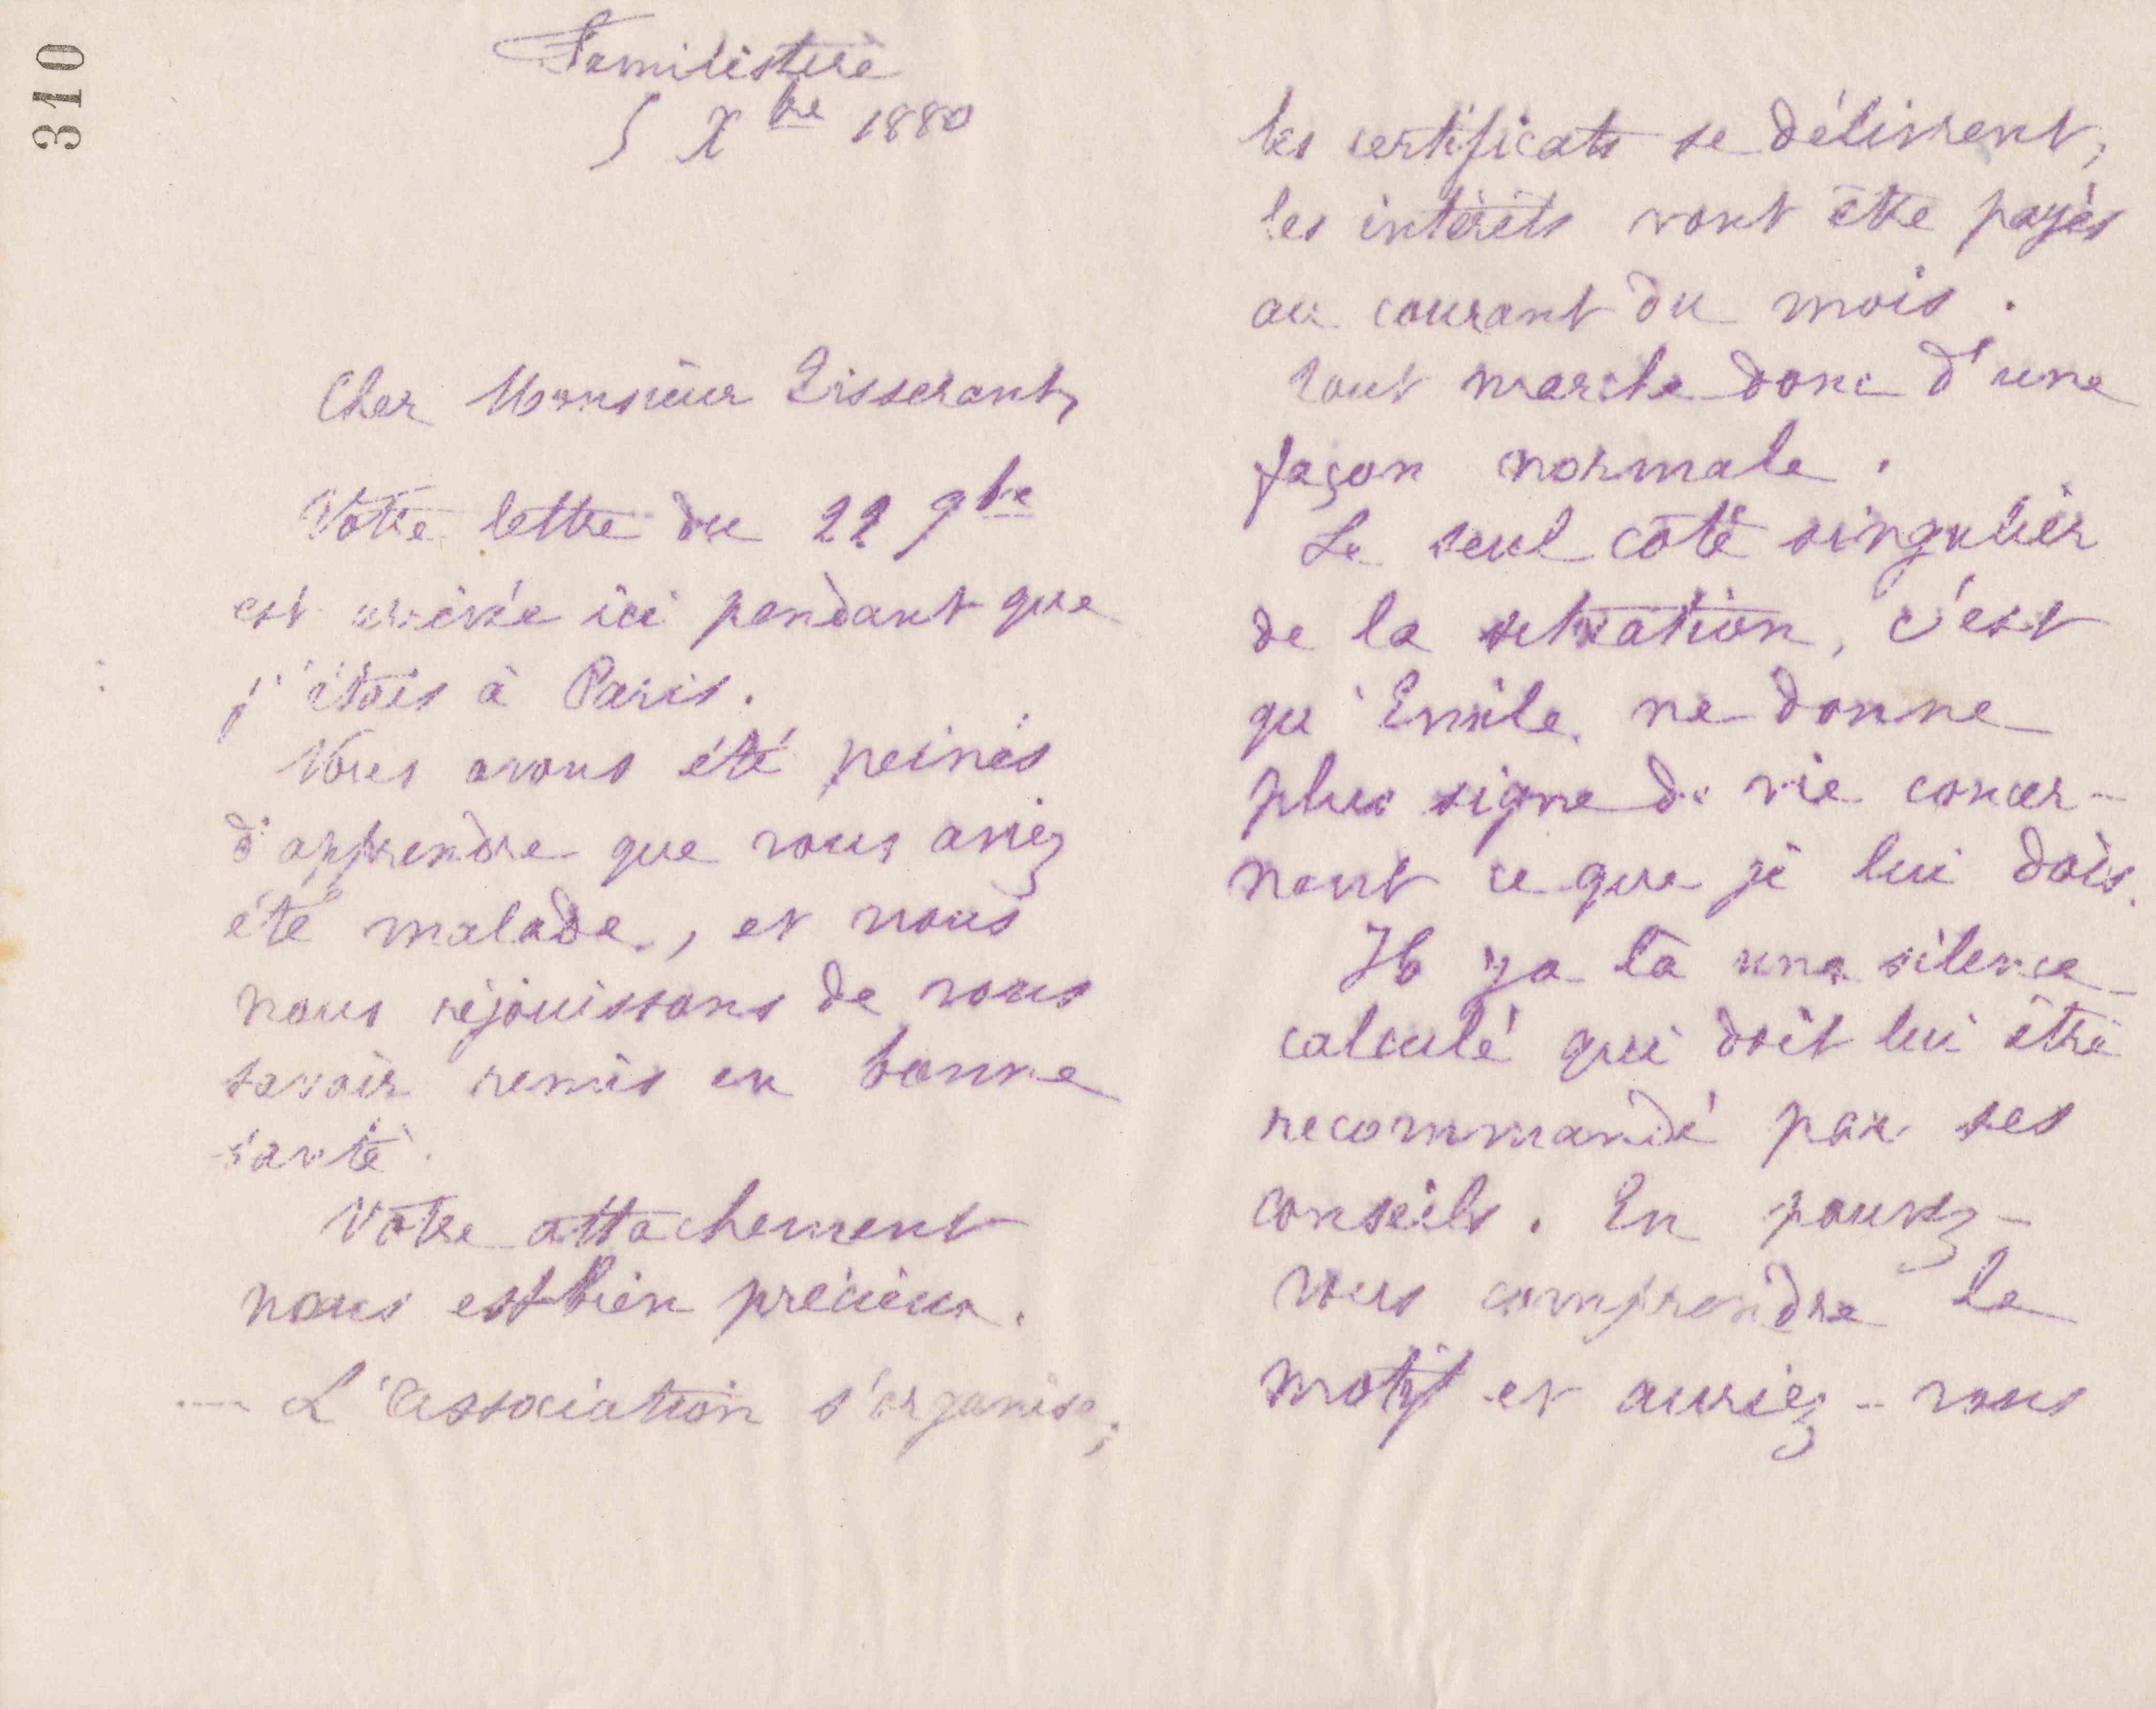 310
Familistère
5 Xbre 1880
Cher Monsieur Tisserant,
Votre lettre du 22 9bre
est arrivée ici pendant que
j'étais à Paris.
Nous avons été peinés
d'apprendre que vous aviez
été malade, et nous
nous réjouissons de vous
savoir remis en bonne
santé.
Votre attachement
nous est bien précieux.
L'association s'organise;
les certificats se délivrent,
les intérêts vont être payés
au courant du mois.
Tout marche donc d'une
façon normale.
Le seul côté singulier
de la situation, c'est
qu'Emile ne donne
plus signe de vie concer-
nant ce que je lui dois.
Il y a là une silence
calculé qui doit lui être
recommandé par ses
conseils. En pouvez-
vous comprendre le
motif et auriez-vous